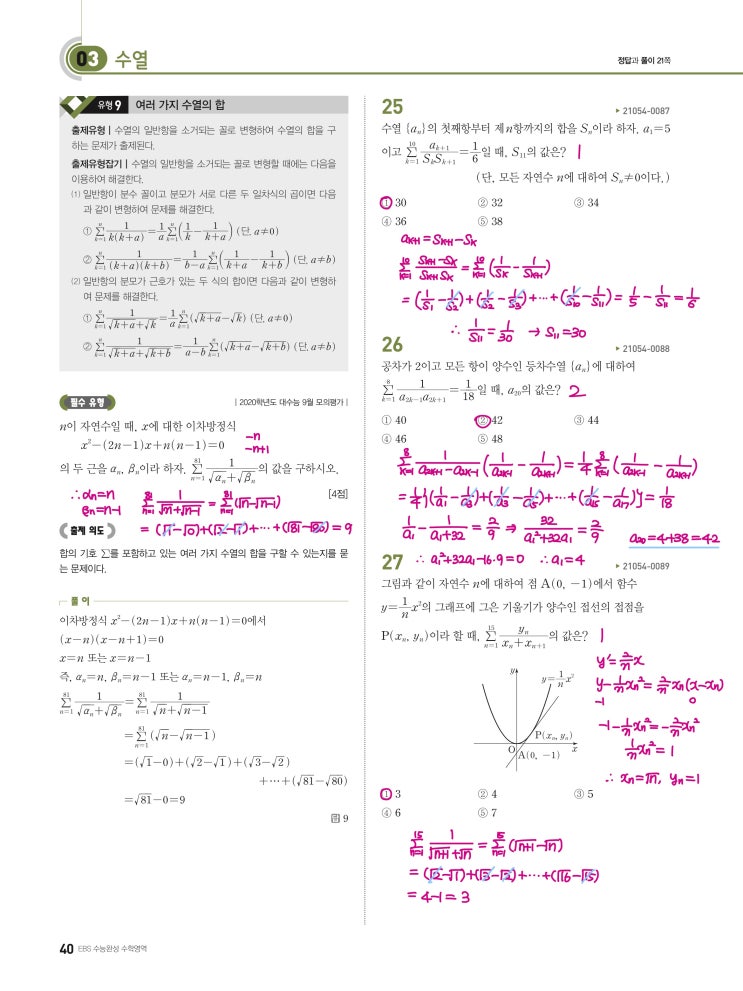 03 수열
정답과 풀이 21쪽
유형 9 여러 가지 수열의 합
출제유형 | 수열의 일반항을 소거되는 꼴로 변형하여 수열의 합을 구
하는 문제가 출제된다.
출제유형잡기 | 수열의 일반항을 소거되는 꼴로 변형할 때에는 다음을
이용하여 해결한다.
(1) 일반항이 분수 꼴이고 분모가 서로 다른 두 일차식의 곱이면 다음
과 같이 변형하여 문제를 해결한다.
① \sum_{k=1}^{n} \frac{1}{k(k+a)} = \frac{1}{a} \sum_{k=1}^{n} (\frac{1}{k} - \frac{1}{k+a}) (단, a≠0)
② \sum_{k=1}^{n} \frac{1}{(k+a)(k+b)} = \frac{1}{b-a} \sum_{k=1}^{n} (\frac{1}{k+a} - \frac{1}{k+b}) (단, a≠b)
(2) 일반항의 분모가 근호가 있는 두 식의 합이면 다음과 같이 변형하
여 문제를 해결한다.
① \sum_{k=1}^{n} \frac{1}{\sqrt{k+a}+\sqrt{k}} = \frac{1}{a} \sum_{k=1}^{n} (\sqrt{k+a}-\sqrt{k}) (단, a≠0)
② \sum_{k=1}^{n} \frac{1}{\sqrt{k+a}+\sqrt{k+b}} = \frac{1}{a-b} \sum_{k=1}^{n} (\sqrt{k+a}-\sqrt{k+b}) (단, a≠b)
필수 유형
| 2020학년도 대수능 9월 모의평가 |
n이 자연수일 때, x에 대한 이차방정식
x²-(2n-1)x+n(n-1)=0
-n
-n+1
의 두 근을 αₙ, βₙ이라 하자. \sum_{n=1}^{81} \frac{1}{\sqrt{αₙ}+\sqrt{βₙ}}의 값을 구하시오.
[4점]
∴ αₙ=n
βₙ=n-1
\sum_{n=1}^{81} \frac{1}{\sqrt{n}+\sqrt{n-1}} = \sum_{n=1}^{81} (\sqrt{n}-\sqrt{n-1})
= (√1-√0)+(√2-√1)+⋯+(√81-√80)=9
출제 의도
합의 기호 ∑를 포함하고 있는 여러 가지 수열의 합을 구할 수 있는지를 묻
는 문제이다.
풀이
이차방정식 x²-(2n-1)x+n(n-1)=0에서
(x-n)(x-n+1)=0
x=n 또는 x=n-1
즉, αₙ=n, βₙ=n-1 또는 αₙ=n-1, βₙ=n
\sum_{n=1}^{81} \frac{1}{\sqrt{αₙ}+\sqrt{βₙ}} = \sum_{n=1}^{81} \frac{1}{\sqrt{n}+\sqrt{n-1}}
= \sum_{n=1}^{81} (\sqrt{n}-\sqrt{n-1})
=(√1-0)+(√2-√1)+(√3-√2)
+⋯+(√81-√80)
=√81-0=9
답 9
25
▸ 21054-0087
수열 {aₙ}의 첫째항부터 제n항까지의 합을 Sₙ이라 하자. a₁=5
이고 \sum_{k=1}^{10} \frac{a_{k+1}}{S_k S_{k+1}} = \frac{1}{6}일 때, S₁₁의 값은? 1
(단, 모든 자연수 n에 대하여 Sₙ≠0이다.)
① 30 ② 32 ③ 34
④ 36 ⑤ 38
a_{k+1}=S_{k+1}-S_k
\sum_{k=1}^{10} \frac{S_{k+1}-S_k}{S_{k+1}S_k} = \sum_{k=1}^{10} (\frac{1}{S_k} - \frac{1}{S_{k+1}})
= (1/S₁ - 1/S₂)+(1/S₂ - 1/S₃)+⋯+(1/S₁₀ - 1/S₁₁) = 1/5 - 1/S₁₁ = 1/6
∴ 1/S₁₁ = 1/30 → S₁₁=30
26
▸ 21054-0088
공차가 2이고 모든 항이 양수인 등차수열 {aₙ}에 대하여
\sum_{k=1}^{8} \frac{1}{a_{2k-1}a_{2k+1}} = \frac{1}{18}일 때, a₂₀의 값은? 2
① 40 ② 42 ③ 44
④ 46 ⑤ 48
\sum_{k=1}^{8} \frac{1}{a_{2k+1}-a_{2k-1}} (\frac{1}{a_{2k-1}} - \frac{1}{a_{2k+1}}) = \frac{1}{4} \sum_{k=1}^{8} (\frac{1}{a_{2k-1}} - \frac{1}{a_{2k+1}})
= 1/4 {(1/a₁ - 1/a₃)+(1/a₃ - 1/a₅)+⋯+(1/a₁₅ - 1/a₁₇)} = 1/18
\frac{1}{a₁} - \frac{1}{a₁+32} = \frac{2}{9} ⇒ \frac{32}{a₁²+32a₁} = \frac{2}{9}
a₂₀=4+38=42
∴ a₁²+32a₁-16·9=0 ∴ a₁=4
27
▸ 21054-0089
그림과 같이 자연수 n에 대하여 점 A(0, -1)에서 함수
y=\frac{1}{n}x²의 그래프에 그은 기울기가 양수인 접선의 접점을
P(xₙ, yₙ)이라 할 때, \sum_{n=1}^{15} \frac{yₙ}{xₙ+x_{n+1}}의 값은? 1
y
y=\frac{1}{n}x²
P(xₙ, yₙ)
O
x
A(0, -1)
y′=\frac{2}{n}x
y-\frac{1}{n}xₙ²=\frac{2}{n}xₙ(x-xₙ)
-1 0
-1-\frac{1}{n}xₙ²=-\frac{2}{n}xₙ²
\frac{1}{n}xₙ²=1
∴ xₙ=√n, yₙ=1
① 3 ② 4 ③ 5
④ 6 ⑤ 7
\sum_{n=1}^{15} \frac{1}{\sqrt{n+1}+\sqrt{n}} = \sum_{n=1}^{15} (\sqrt{n+1}-\sqrt{n})
= (√2-√1)+(√3-√2)+⋯+(√16-√15)
= 4-1=3
40 EBS 수능완성 수학영역